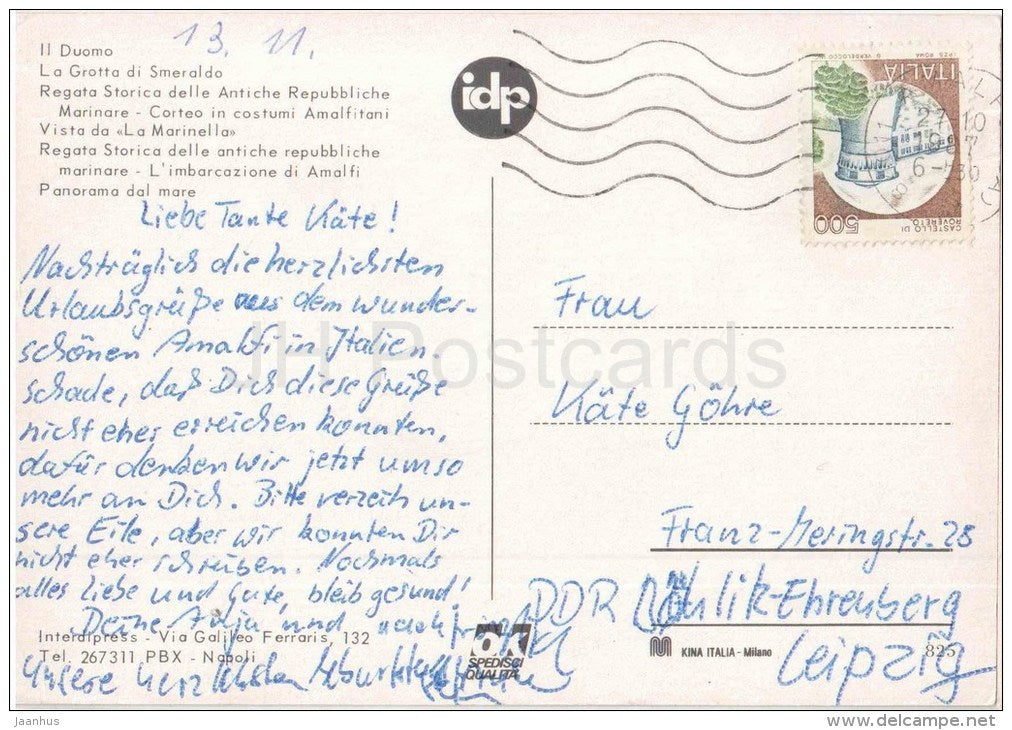 13. 11.
Il Duomo
La Grotta di Smeraldo
Regata Storica delle Antiche Repubbliche
Marinare - Corteo in costumi Amalfitani
Vista da «La Marinella»
Regata Storica delle antiche repubbliche
marinare - L'imbarcazione di Amalfi
Panorama dal mare
Liebe Tante Käte!
Nachträglich die herzlichsten
Urlaubsgrüße aus dem wunder-
schönen Amalfi in Italien.
Schade, daß Dich diese Grüße
nicht eher erreichen konnten,
dafür denken wir jetzt umso
mehr an Dich. Bitte verzeih un-
sere Eile, aber wir konnten Dir
nicht eher schreiben. Nochmals
alles Liebe und Gute, bleib gesund!
Deine und noch
unsere herzlichsten
Interdipress - Via Galileo Ferraris, 132
Tel. 267311 PBX - Napoli
idp
ITALIA
500
CASTELLO DI
ROVERETO
27-10
6-30
Frau
Käte Göhre
Franz-Meringstr. 28
DDR Böhlitz-Ehrenberg
Leipzig
SPEDISCI
QUALITÀ
KINA ITALIA - Milano
825
JH Postcards
Jaanhus
www.delcampe.net